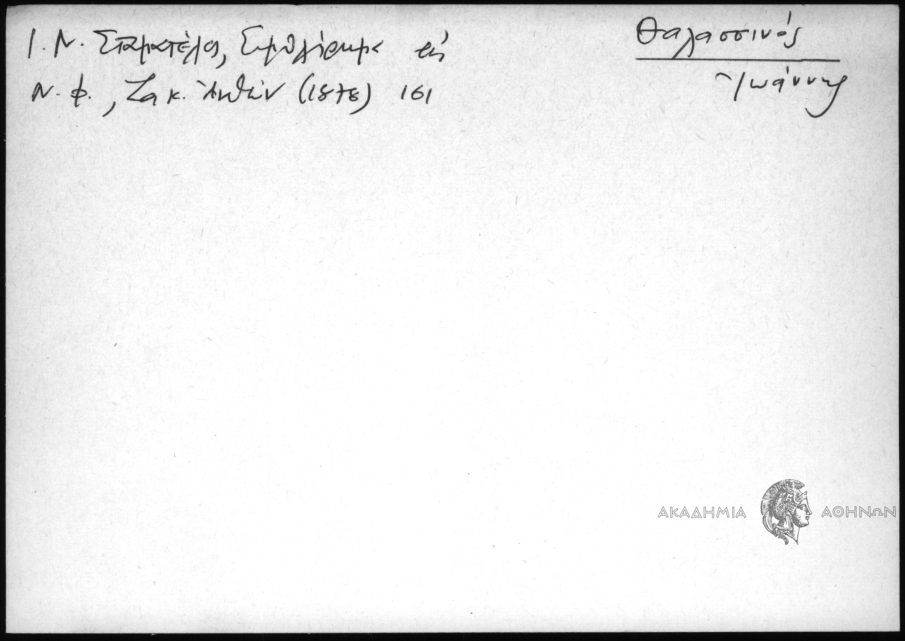 Θαλασσινός
Ἰωάννης
Ι. Ν. Σταματέλου, Συμπλήρωμα εἰς
Ν. Φ., Ζακ. Ἀνθών (1878) 161
ΑΚΑΔΗΜΙΑ ΑΘΗΝΩΝ